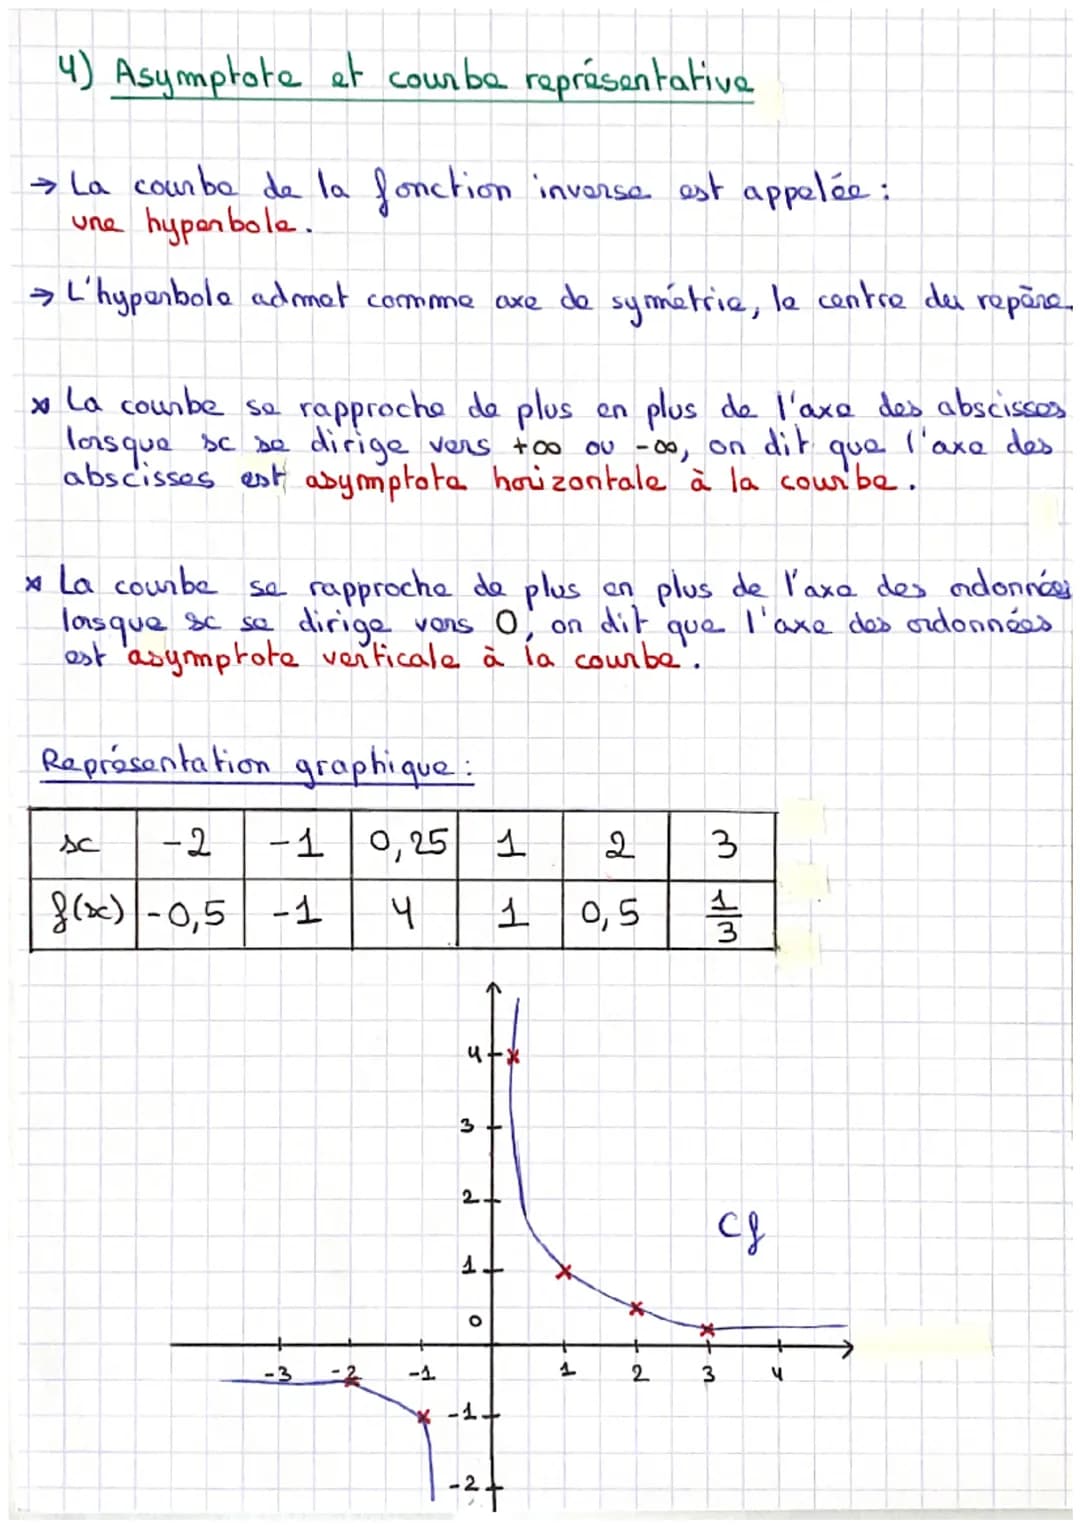 4) Asymptote et courbe représentative
→ La courbe de la fonction inverse est appelée :
une hyperbole.
→ L'hyperbole admet comme axe de symétrie, le centre du repère.
* La courbe se rapproche de plus en plus de l'axe des abscisses
lorsque x se dirige vers +∞ ou -∞, on dit que l'axe des
abscisses est asymptote horizontale à la courbe.
* La courbe se rapproche de plus en plus de l'axe des ordonnées
lorsque x se dirige vers 0, on dit que l'axe des ordonnées
est asymptote verticale à la courbe.
Représentation graphique :
x -2 -1 0,25 1 2 3
f(x) -0,5 -1 4 1 0,5 1/3
4
3
2
Cf
1
0
-3 -2 -1 1 2 3 4
-1
-2